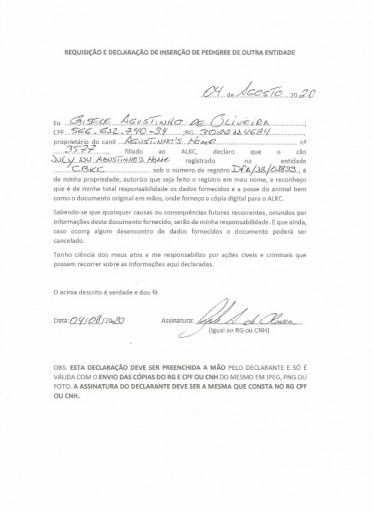 REQUISIÇÃO E DECLARAÇÃO DE INSERÇÃO DE PEDIGREE DE OUTRA ENTIDADE
04 de AGOSTO 2020
Eu GISELE AGUSTINHO DE OLIVEIRA
CPF RG
proprietário do canil AGUSTINHO'S HOME nº
3577 filiado ao ALKC, declaro que o cão
JULY JU AGUSTINHO'S HOME registrado na entidade
CBKC sob o número de registro é
de minha propriedade, autorizo que seja feito o registro em meu nome, e reconheço
que é de minha total responsabilidade os dados fornecidos e a posse do animal bem
como o documento original em mãos, onde forneço a cópia digital para o ALKC.
Sabendo-se que quaisquer causas ou consequências futuras recorrentes, oriundos por
informações desta documento fornecido, serão de minha responsabilidade. E que ainda,
caso ocorra algum desencontro de dados fornecidos o documento poderá ser
cancelado.
Tenho ciência dos meus atos e me responsabilizo por ações cíveis e criminais que
possam recorrer sobre as informações aqui declaradas.
O acima descrito é verdade e dou fé
Data: 04/08/2020 Assinatura:
(Igual ao RG ou CNH)
OBS: ESTA DECLARAÇÃO DEVE SER PREENCHIDA A MÃO PELO DECLARANTE E SÓ É
VÁLIDA COM O ENVIO DAS CÓPIAS DO RG E CPF OU CNH DO MESMO EM JPEG, PNG OU
FOTO. A ASSINATURA DO DECLARANTE DEVE SER A MESMA QUE CONSTA NO RG CPF
OU CNH.